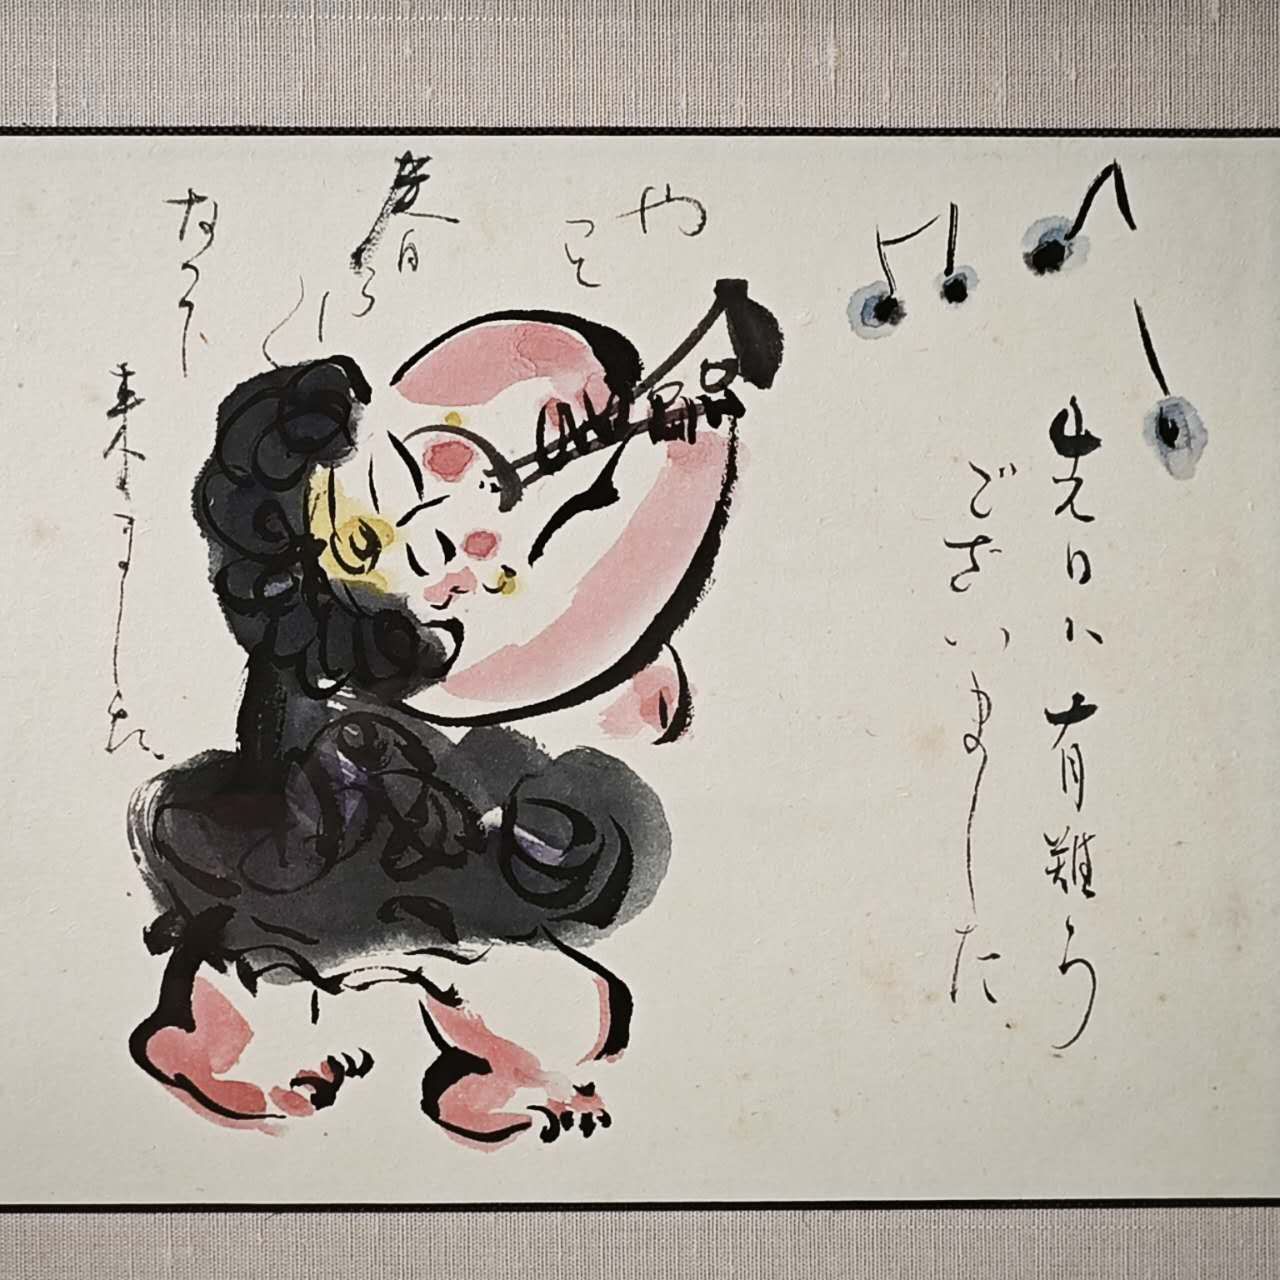 先日ハ有難う
ございました
やっと
春らしく
なって
来ました